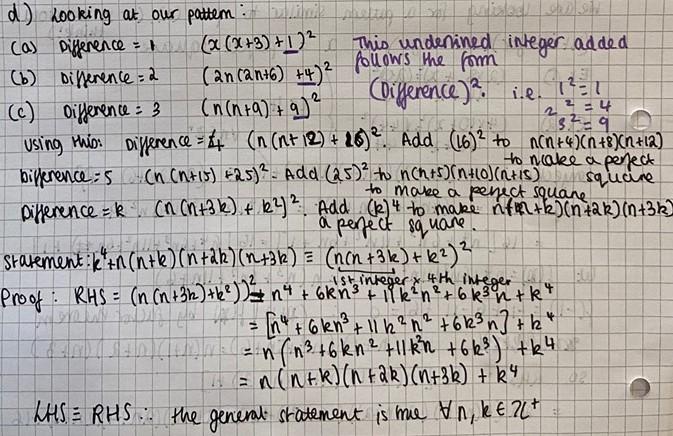 d) Looking at our pattern:
(a) Difference = 1 (x(x+3)+1)²
(b) Difference = 2 (2n(2n+6)+4)²
(c) Difference = 3 (n(n+9)+9)²
This underlined integer added
follows the form
(Difference)². i.e. 1²=1
2²=4
3²=9
Using this: Difference = 4 (n(n+12)+16)². Add (16)² to n(n+4)(n+8)(n+12)
to make a perfect
square
Difference = 5 (n(n+15)+25)². Add (25)² to n(n+5)(n+10)(n+15)
to make a perfect square
Difference = k (n(n+3k)+k²)². Add (k)⁴ to make n(n+k)(n+2k)(n+3k)
a perfect square.
Statement: k⁴+n(n+k)(n+2k)(n+3k) ≡ (n(n+3k)+k²)²
1st integer × 4th integer
Proof: RHS = (n(n+3k)+k²))² = n⁴ + 6kn³ + 11k²n² + 6k³n + k⁴
= [n⁴ + 6kn³ + 11k²n² + 6k³n] + k⁴
= n(n³+6kn²+11k²n + 6k³) + k⁴
= n(n+k)(n+2k)(n+3k) + k⁴
LHS ≡ RHS ∴ the general statement is true ∀ n, k ∈ ℤ⁺